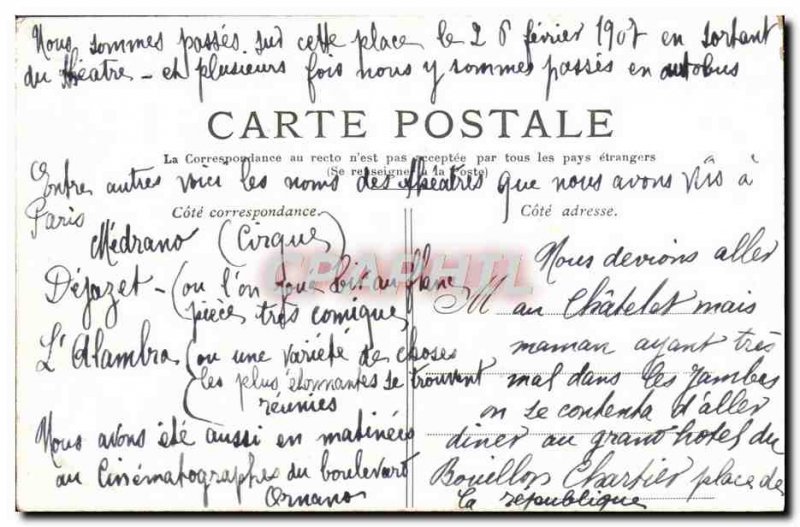 Nous sommes passés sur cette place le 26 février 1907 en sortant
du théatre - et plusieurs fois nous y sommes passés en autobus
CARTE POSTALE
La Correspondance au recto n'est pas acceptée par tous les pays étrangers
(Se renseigner à la Poste)
Entre autres voici les noms des théatres que nous avons vus à
Paris
Côté correspondance.
Médrano (Cirque)
Déjazet - (ou l'on joue
pièces très comiques
L'Alambra (ou une variété de choses
les plus étonnantes se trouvent
réunies
Nous avons été aussi en matinées
au Cinématographe du boulevard
Ornano
Côté adresse.
Nous devions aller
M au Châtelet mais
maman ayant très
mal dans les jambes
on se contenta d'aller
diner au grand hotel du
Bouillon Chartier place de
la république
CPAPHIL